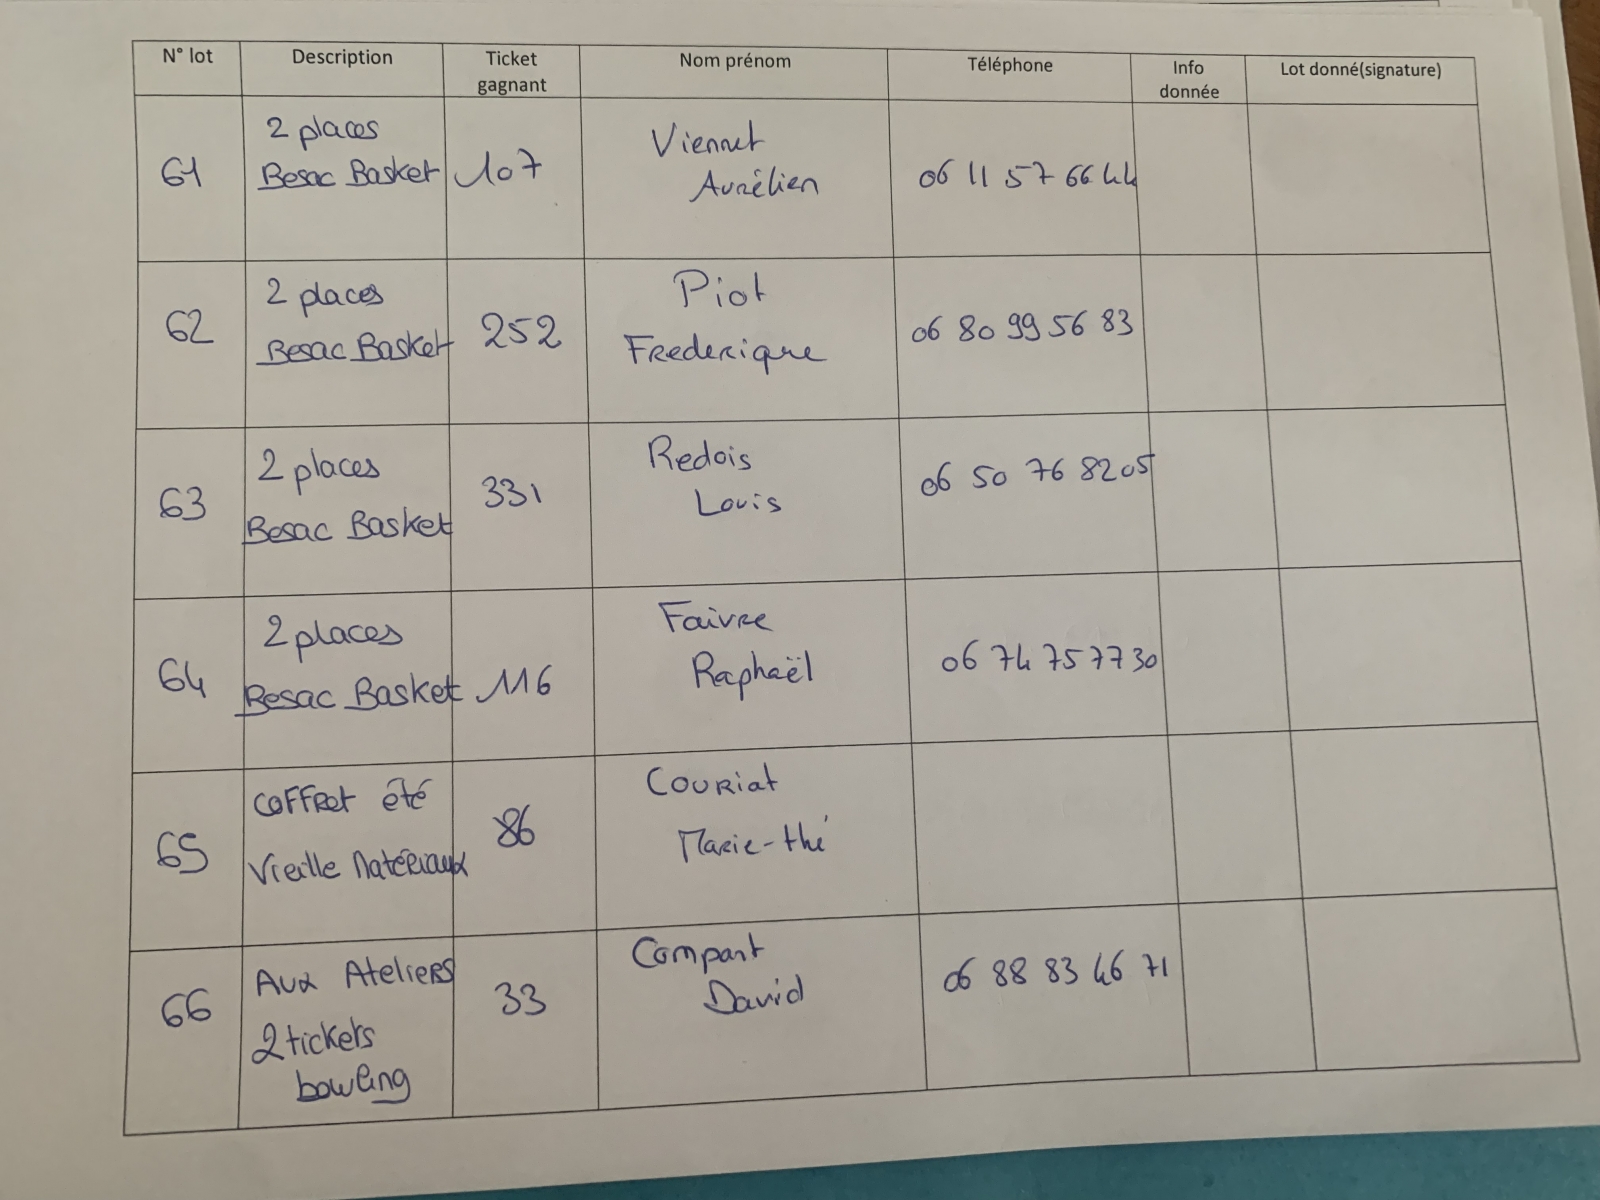 N° lot Description Ticket gagnant Nom prénom Téléphone Info donnée Lot donné(signature)
61 2 places Besac Basket 107 Viennet Aurélien 06 11 57 66 44
62 2 places Besac Basket 252 Piot Frederique 06 80 99 56 83
63 2 places Besac Basket 331 Redois Louis 06 50 76 82 05
64 2 places Besac Basket 116 Faivre Raphaël 06 74 75 77 30
65 Coffret été Vieille Matériaux 86 Couriat Marie-thé
66 Aux Ateliers 2 tickets bowling 33 Compant David 06 88 83 46 71